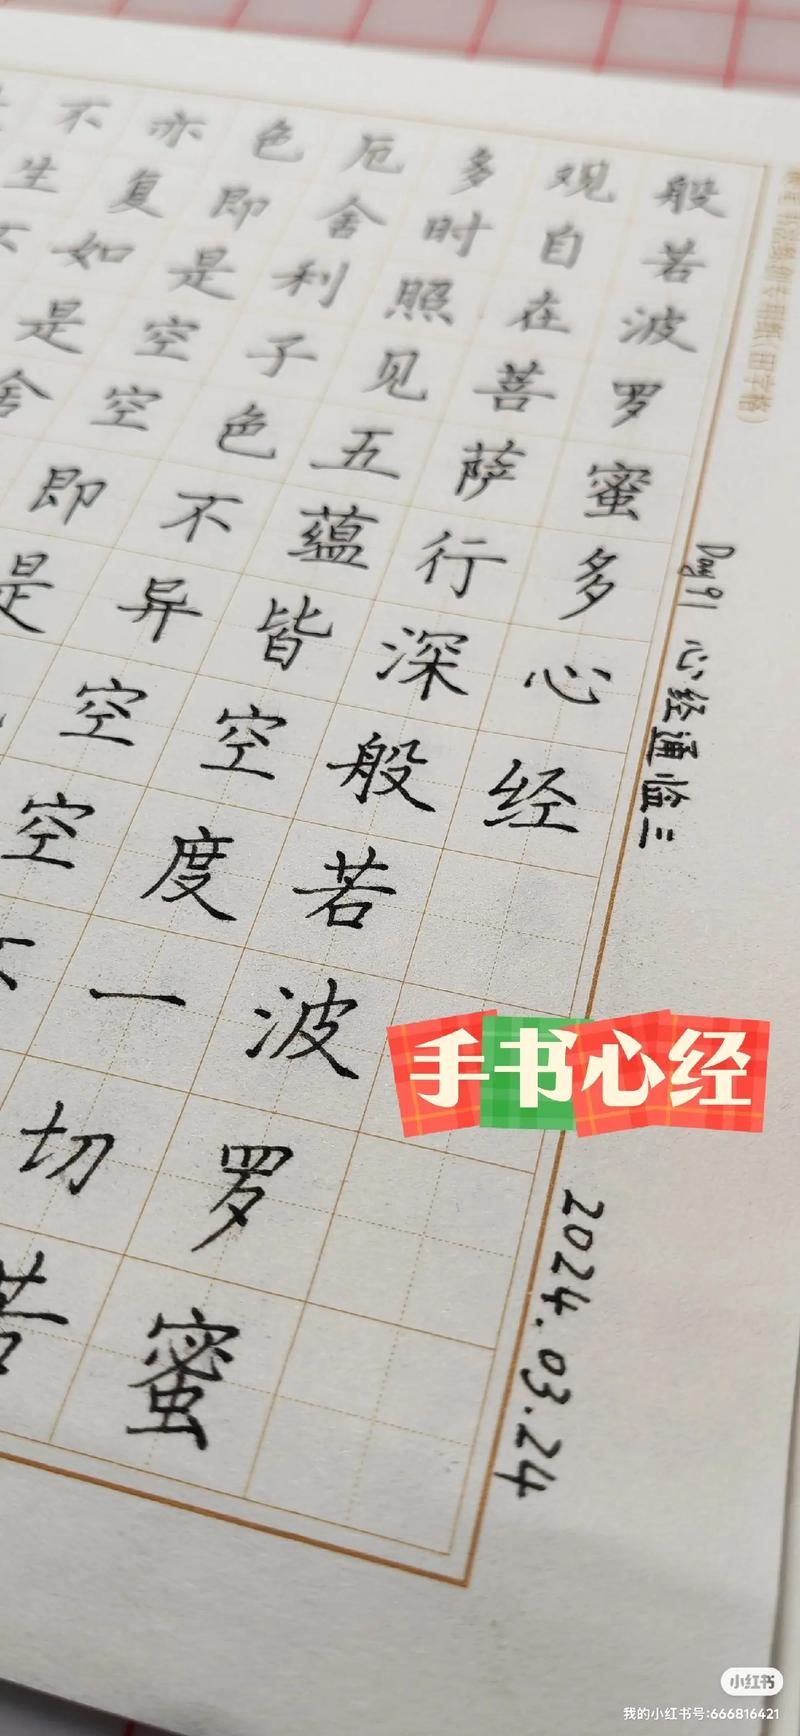 般若波罗蜜多心经
观自在菩萨行深般若波罗蜜
多时照见五蕴皆空度一切苦
厄舍利子色不异空空不
色即是空空即是
亦复如是舍
不生不
专用纸(田字格)
Day91 心经通临三
2024.03.24
手书心经
小红书
我的小红书号:666816421